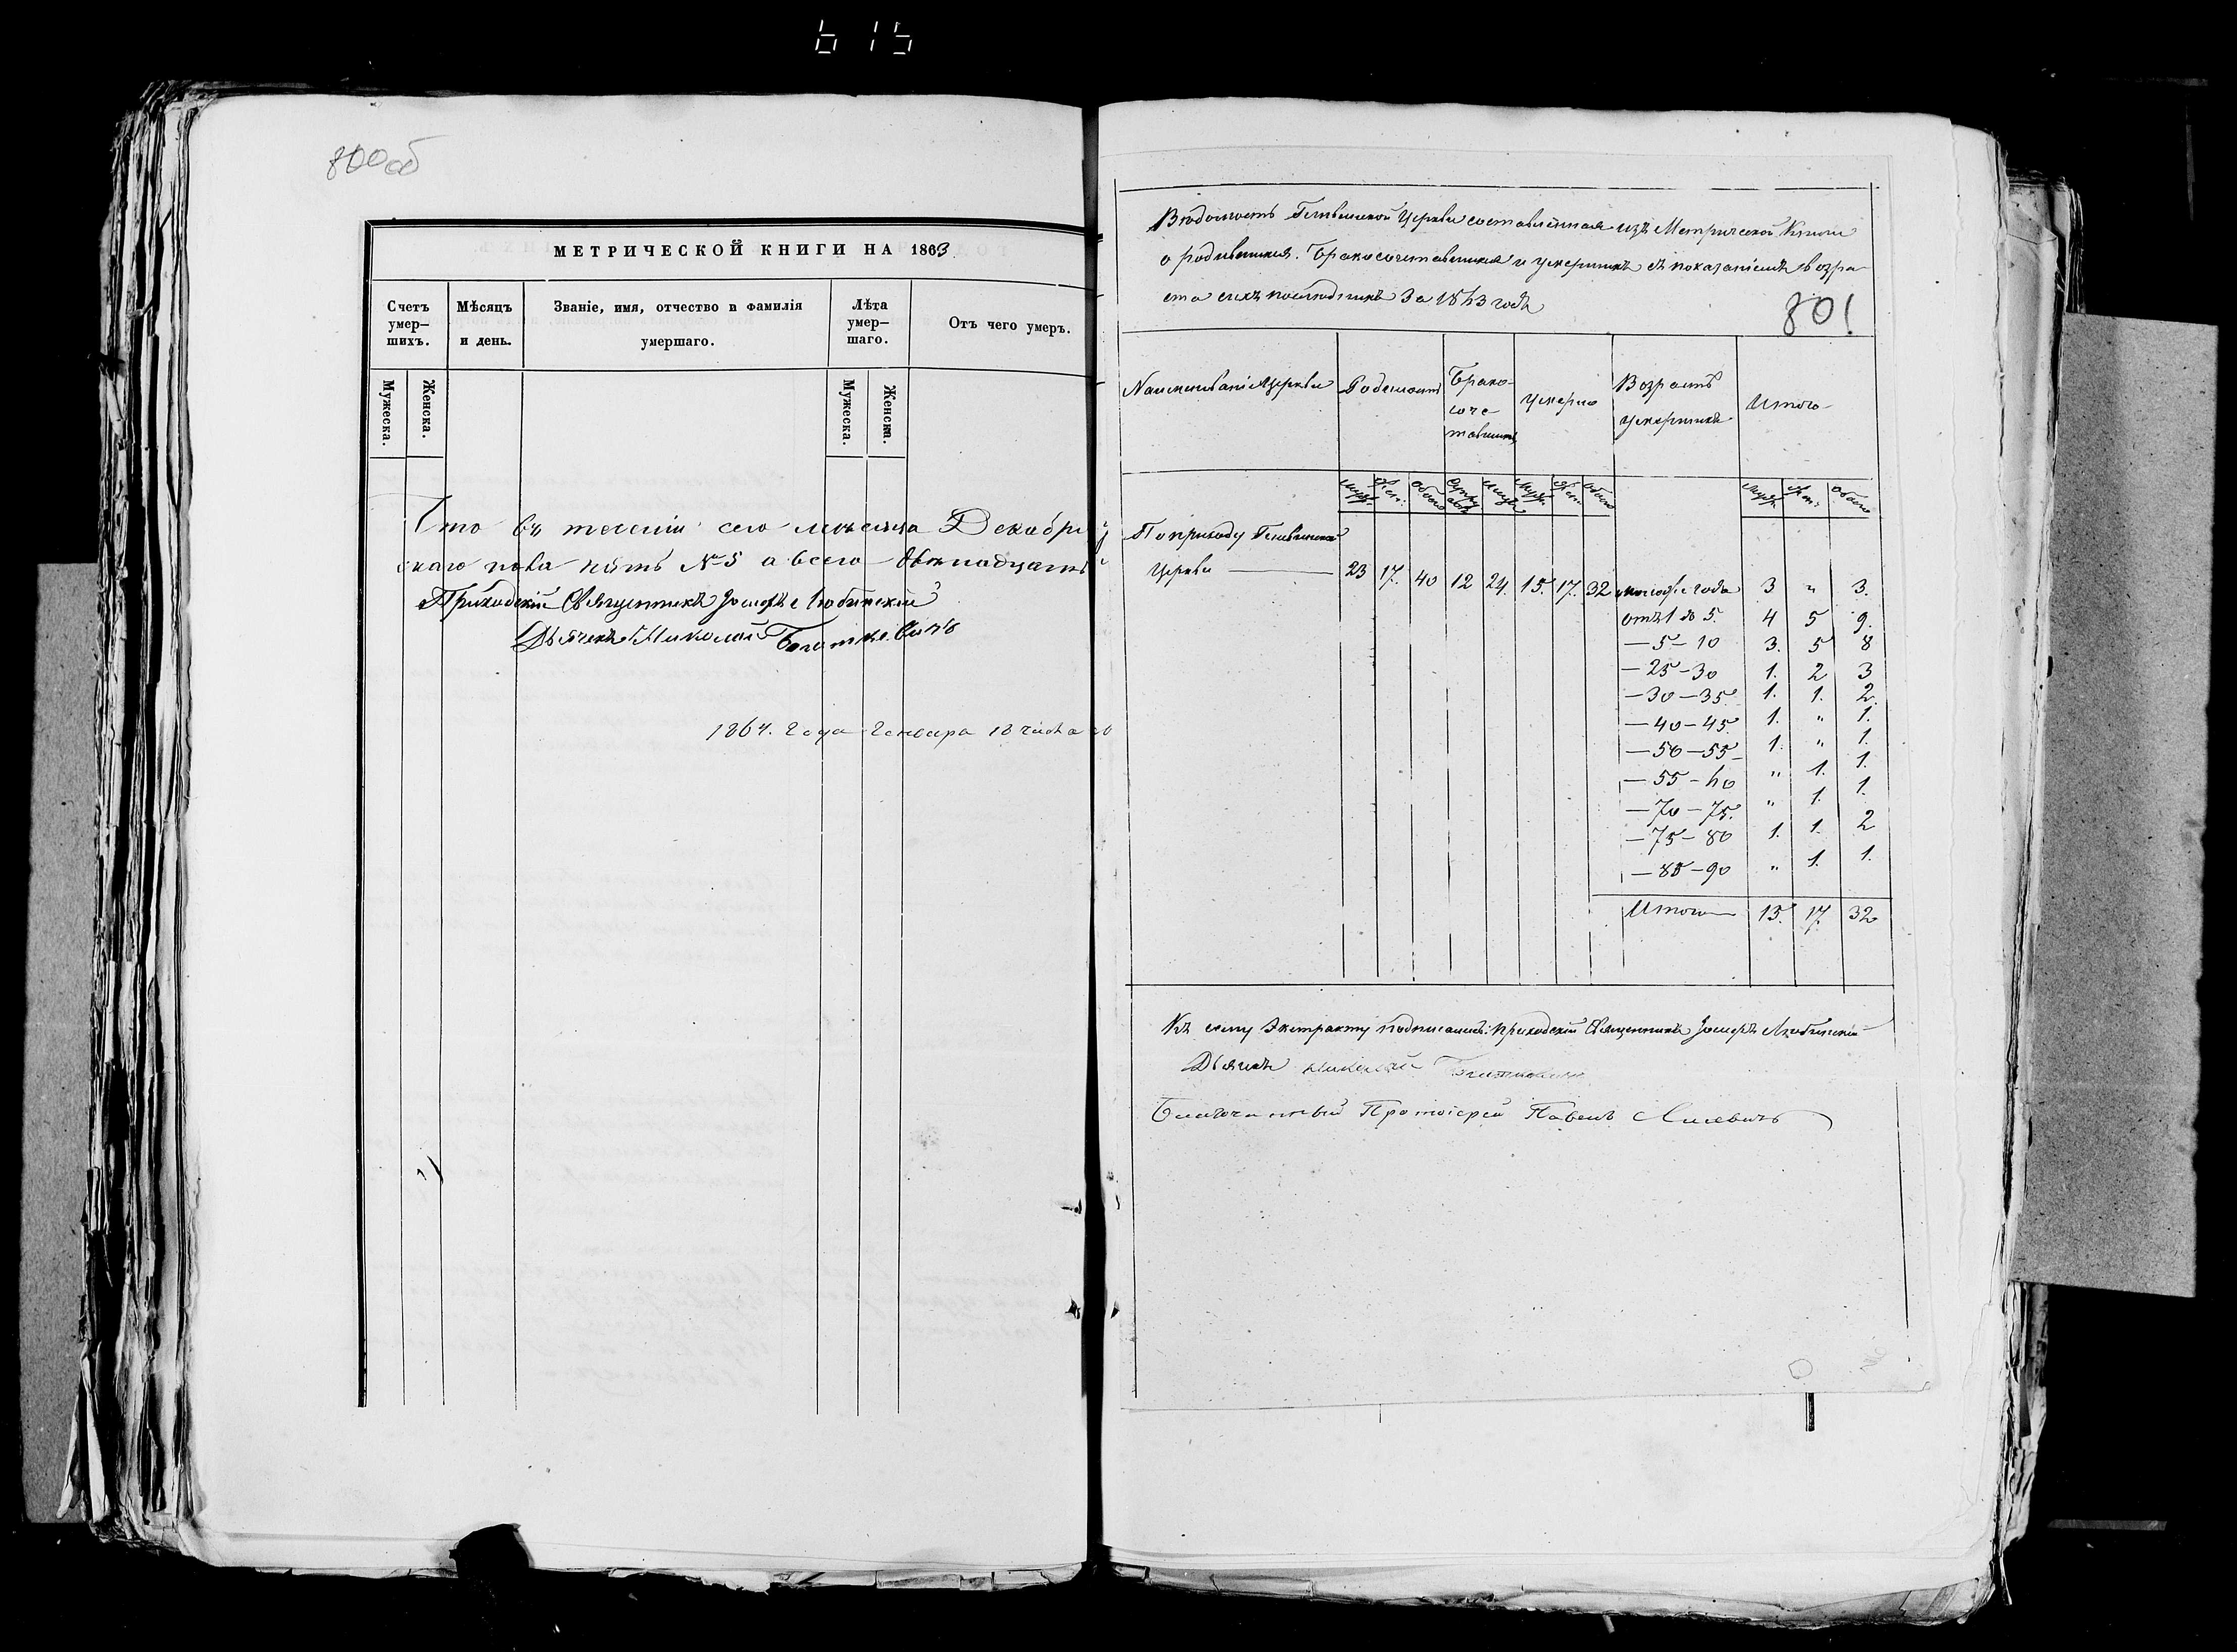 800об
МЕТРИЧЕСКОЙ КНИГИ НА 1863
Счетъ умер–шихъ.
Мѣсяцъ и день.
Званіе, имя, отчество и фамилія умершаго.
Лѣта умер–шаго.
Отъ чего умеръ.
Мужеска.
Женска.
Мужеска.
Женска.
Что въ теченіи сего мѣсяца Декабря
скаго пола пять №5 а всего двенадцать
Приходскій Священникъ Іосифъ Любинскій
Дьячекъ Николай
1864. Года Генваря 18 числа
Вѣдомость Церкви составленная изъ Метрической Книги
о родившихся. Бракосочетавшихся и умершихъ съ показаніемъ возра–
ста сихъ послѣднихъ За 1863 годъ
801
Наименованіе Церкви
Родилось
Брако–соче–тавшихъ
Умерло
Возрастъ умершихъ
Итого
Муж. Жен. Обоего Муж. Жен. Обоего Муж. Жен. Обоего
По приходу
Церкви — 23 17. 40 12 24. 15. 17. 32 года 3 " 3.
отъ 1 до 5. 4 5 9.
— 5 – 10 3. 5 8
— 25 – 30 1. 2 3
— 30 – 35. 1. 1. 2.
— 40 – 45. 1. " 1.
— 50 – 55 1. " 1.
— 55 – 60 " 1. 1.
— 70 – 75. " 1. 1.
— 75 – 80 1. 1. 2
— 85 – 90 " 1. 1.
Итого — 15. 17. 32
Къ сему Экстракту подписались: Приходскій Священникъ Іосифъ Любинскій
Дьячекъ Николай
Благочинный Протоіерей Павелъ